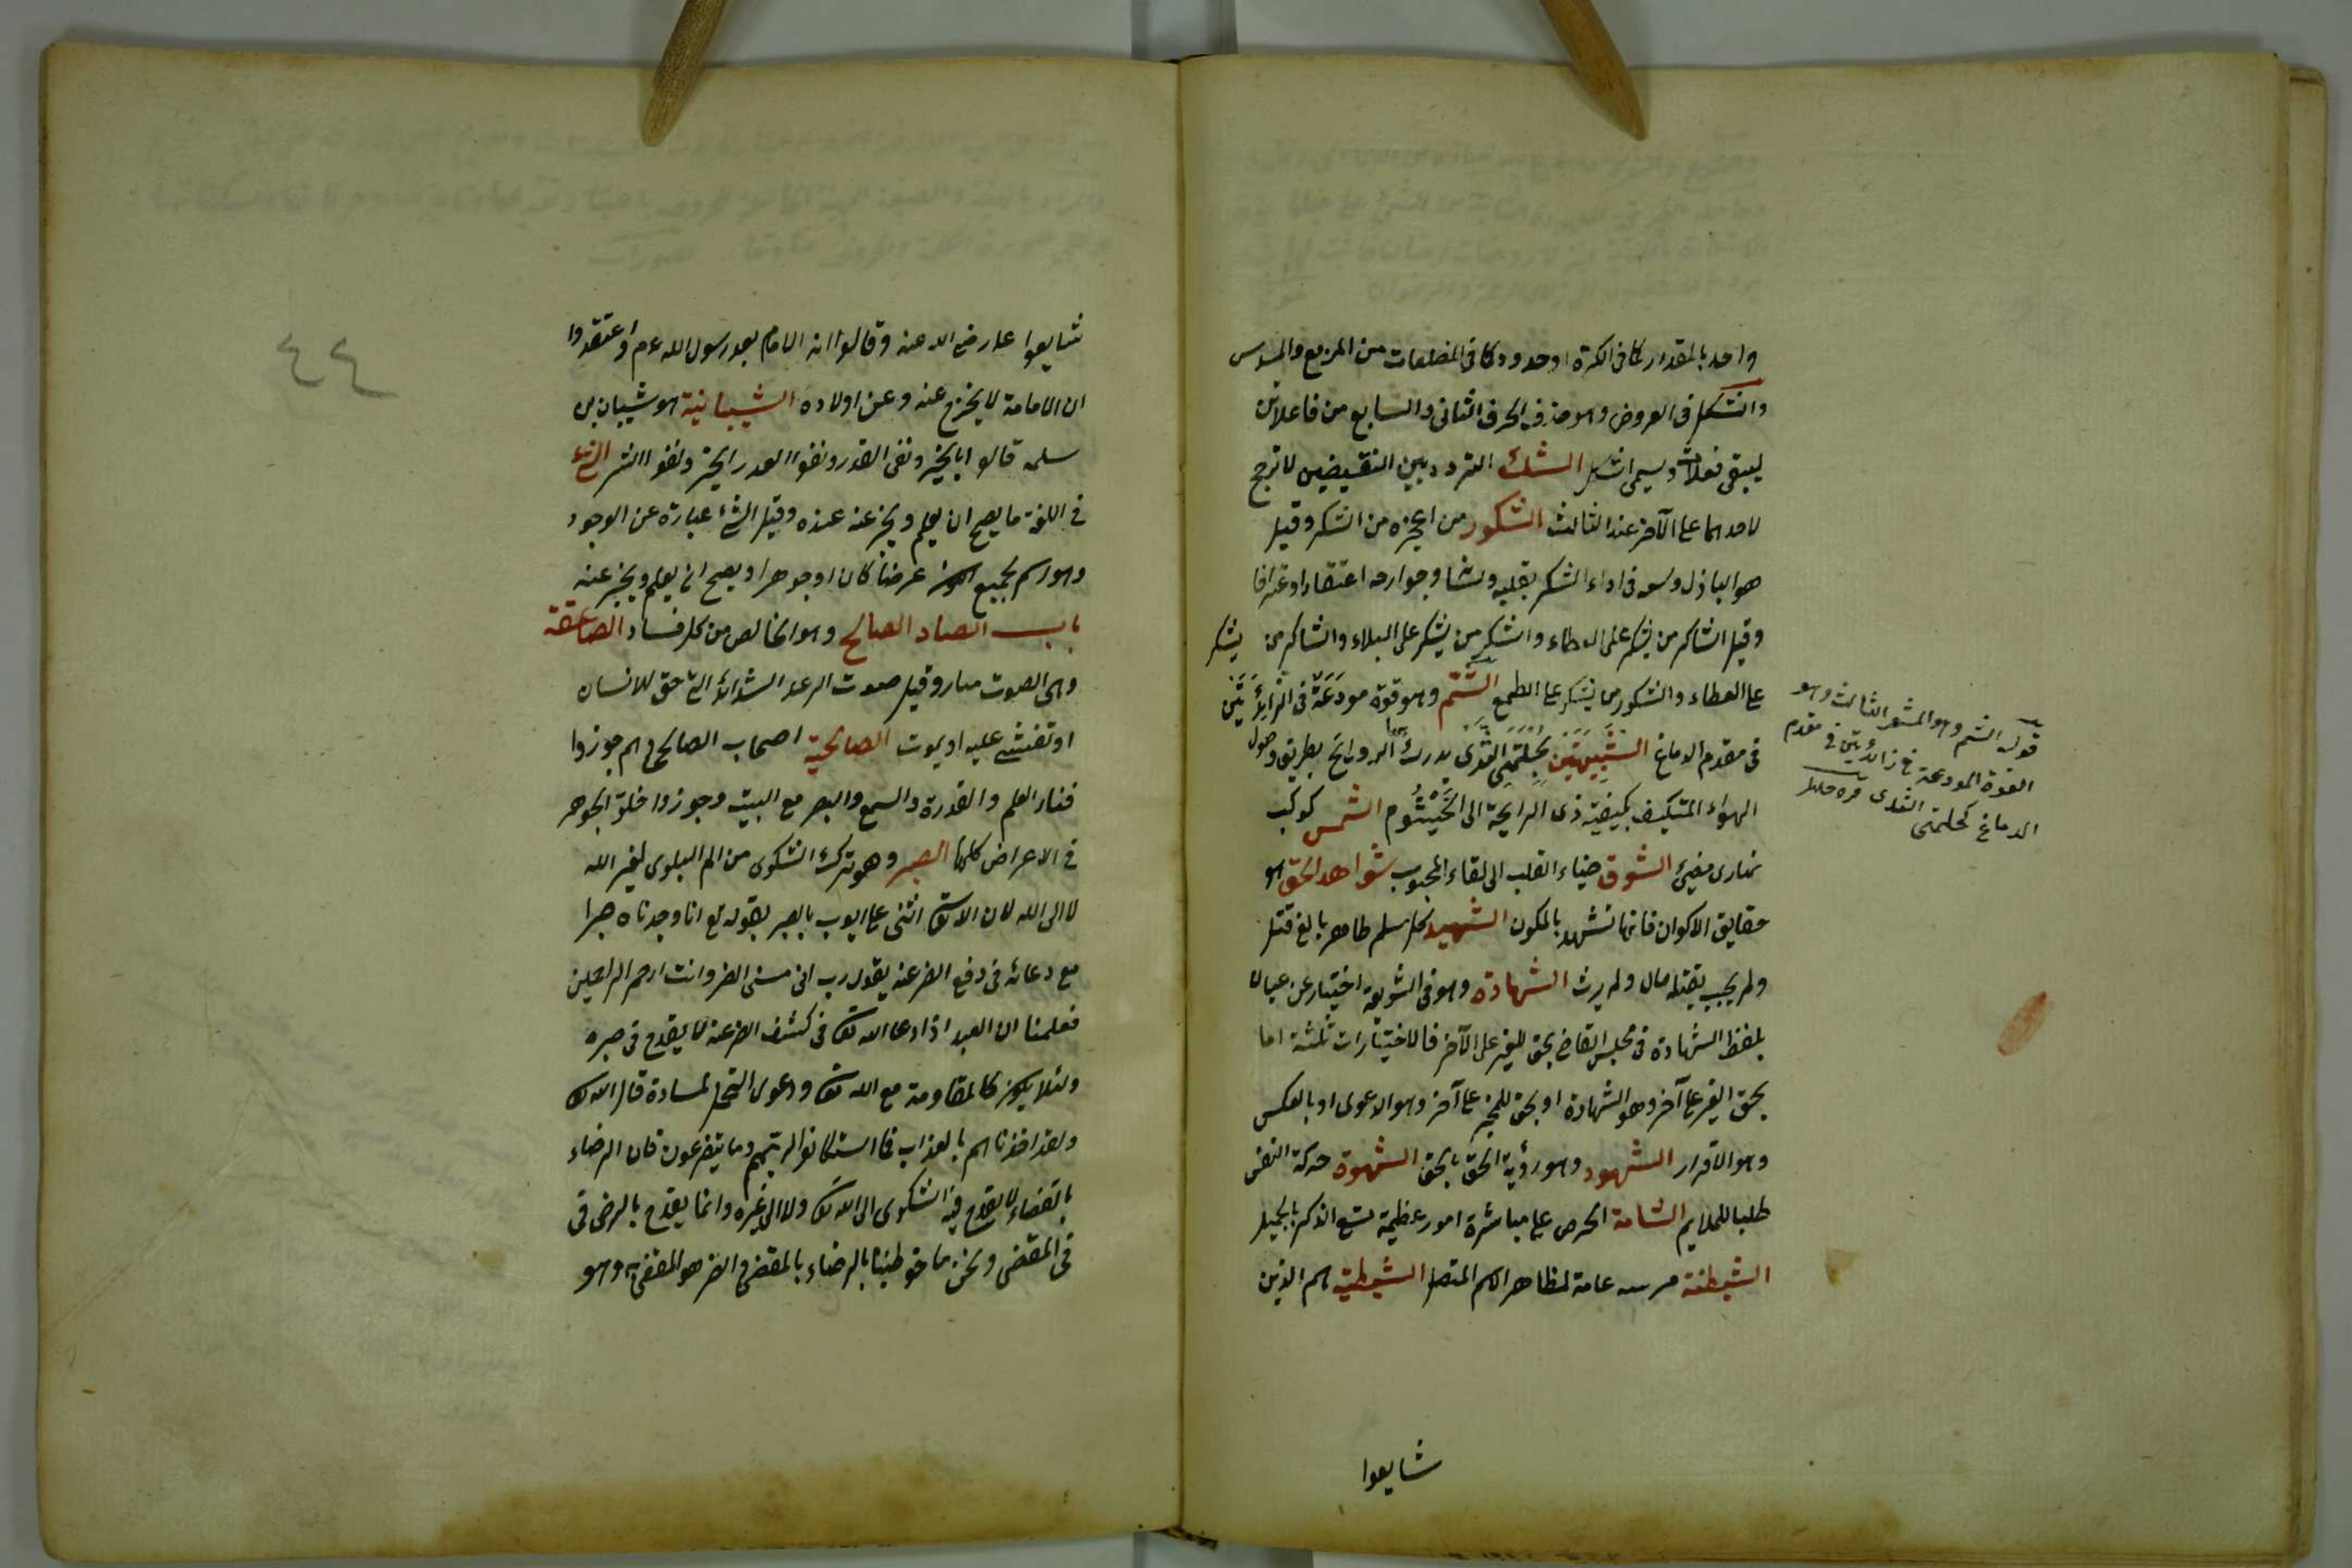 واحد بالمقدار كما فى الكرة او حدود كما فى المضلعات من المربع والمسدس
والشكل فى العروض وهو حذف الحرف الثانى والسابع من فاعلاتن
ليبقى فعلات ويسمى اشكل الشك التردد بين النقيضين لا ترجح
لاحدهما على الآخر عند الثالث الشكور من اعجزه من الشكر وقيل
هو الباذل وسعه فى اداء الشكر بقلبه ولسانه وجوارحه اعتقادا وعترافا
وقيل الشاكر من يشكر على العطاء والشكر من يشكر على البلاء والشاكر من يشكر
على العطاء والشكور من يشكر على الطمع الشَّمّ وهو قوة مودَعَة فى الزائدَتَيْن
فى مقدم الدماغ الشَّبيهَتَين بحَلَمَتَى الثَّدْى يدرك بها الروايح بطريق وصول
الهواء المتكيف بكيفية ذى الرايحة الى الخَيْشُوم الشمس كوكب
نهارى مضيئ الشوق ضياء القلب الى لقاء المحبوب شواهد الحق هو
حقايق الاكوان فانها تشهد بالمكون الشهيد كل مسلم طاهر بالغ قتل
ولم يجب بقتله مال ولم يرث الشهادة وهو فى الشريعة اختبار عن عيان
بلفظ الشهادة فى مجلس القاضى بحق للغير على الآخر فالاختبارات ثلثة اما
بحق الغير على آخر وهو الشهادة او بحق للمخبر على آخر وهو الدعوى او بالعكس
وهو الاقرار الشهود وهو رؤية الحق بالحق الشهوة حركة النفس
طلبا للملايم الشهامة الحرص على مباشرة امور عظيمة تستتبع الذكر بالجميل
الشيطنة مرتبة عامة لمظاهر الاسم المضل الشيطية هم الذين
شايعوا
قوله الشم وهو المشعر الثالث وهو
القوة المودعة فى زائدتين فى مقدم
الدماغ كحلمتى الثدى
٤٤
شايعوا على رضى الله عنه وقالوا انه الامام بعد رسول الله عم واعتقدوا
ان الامامة لا يخرج عنه وعن اولاده الشيبانية هو شيبان بن
سلمه قالوا بالجبر ونفى القدر الشئ
فى اللغة ما يصح ان يعلم ويخبر عنه عنده وقيل الشئ عبارة عن الوجود
وهو اسم لجميع عرضا كان او جوهرا ويصح ان يعلم ويخبر عنه
باب الصاد الصالح وهو الخالص من كل فساد الصاعقة
وهى الصوت مع نار وقيل صوت الرعد الشديد التى حق للانسان
او تغشى عليه او يموت الصالحية اصحاب الصالحى هم جوزوا
قيام العلم والقدرة والسمع والبصر مع الميت وجوزوا خلو الجوهر
فى الاعراض كلها الصبر وهو ترك الشكوى من الم البلوى لغير الله
لا الى الله لان الله تعالى اثنى على ايوب بالصبر بقوله تع انا وجدناه صبرا
مع دعائه فى دفع الضر عنه بقوله رب انى مسنى الضر وانت ارحم الراحمين
فعلمنا ان العبد اذا دعا الله تعالى فى كشف الضر عنه لا يقدح فى صبره
ولئلا يكون كالمقاومة مع الله تعالى ودعوى التحمل لمسادة قال الله تعالى
ولقد اخذناهم بالعذاب فما استكانوا لربهم وما يتضرعون فان الرضاء
بالقضاء لا يقدح فيه الشكوى الى الله تعالى ولا الى غيره وانما يقدح بالرضى فى
فى المقضى ونحن ما خوطبنا بالرضاء بالمقضى والضر هو المقضى به وهو